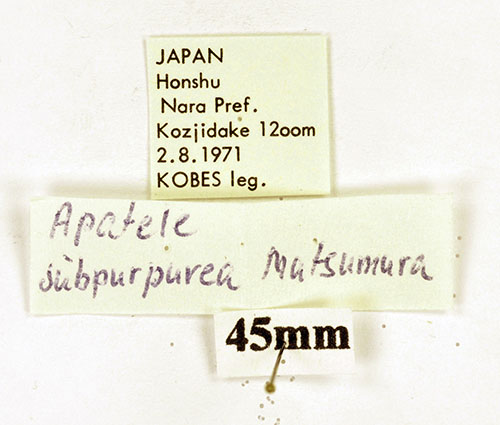 JAPAN
Honshu
Nara Pref.
Kozjidake 12oom
2.8.1971
KOBES leg.
Apatele
subpurpurea Matsumura
45mm